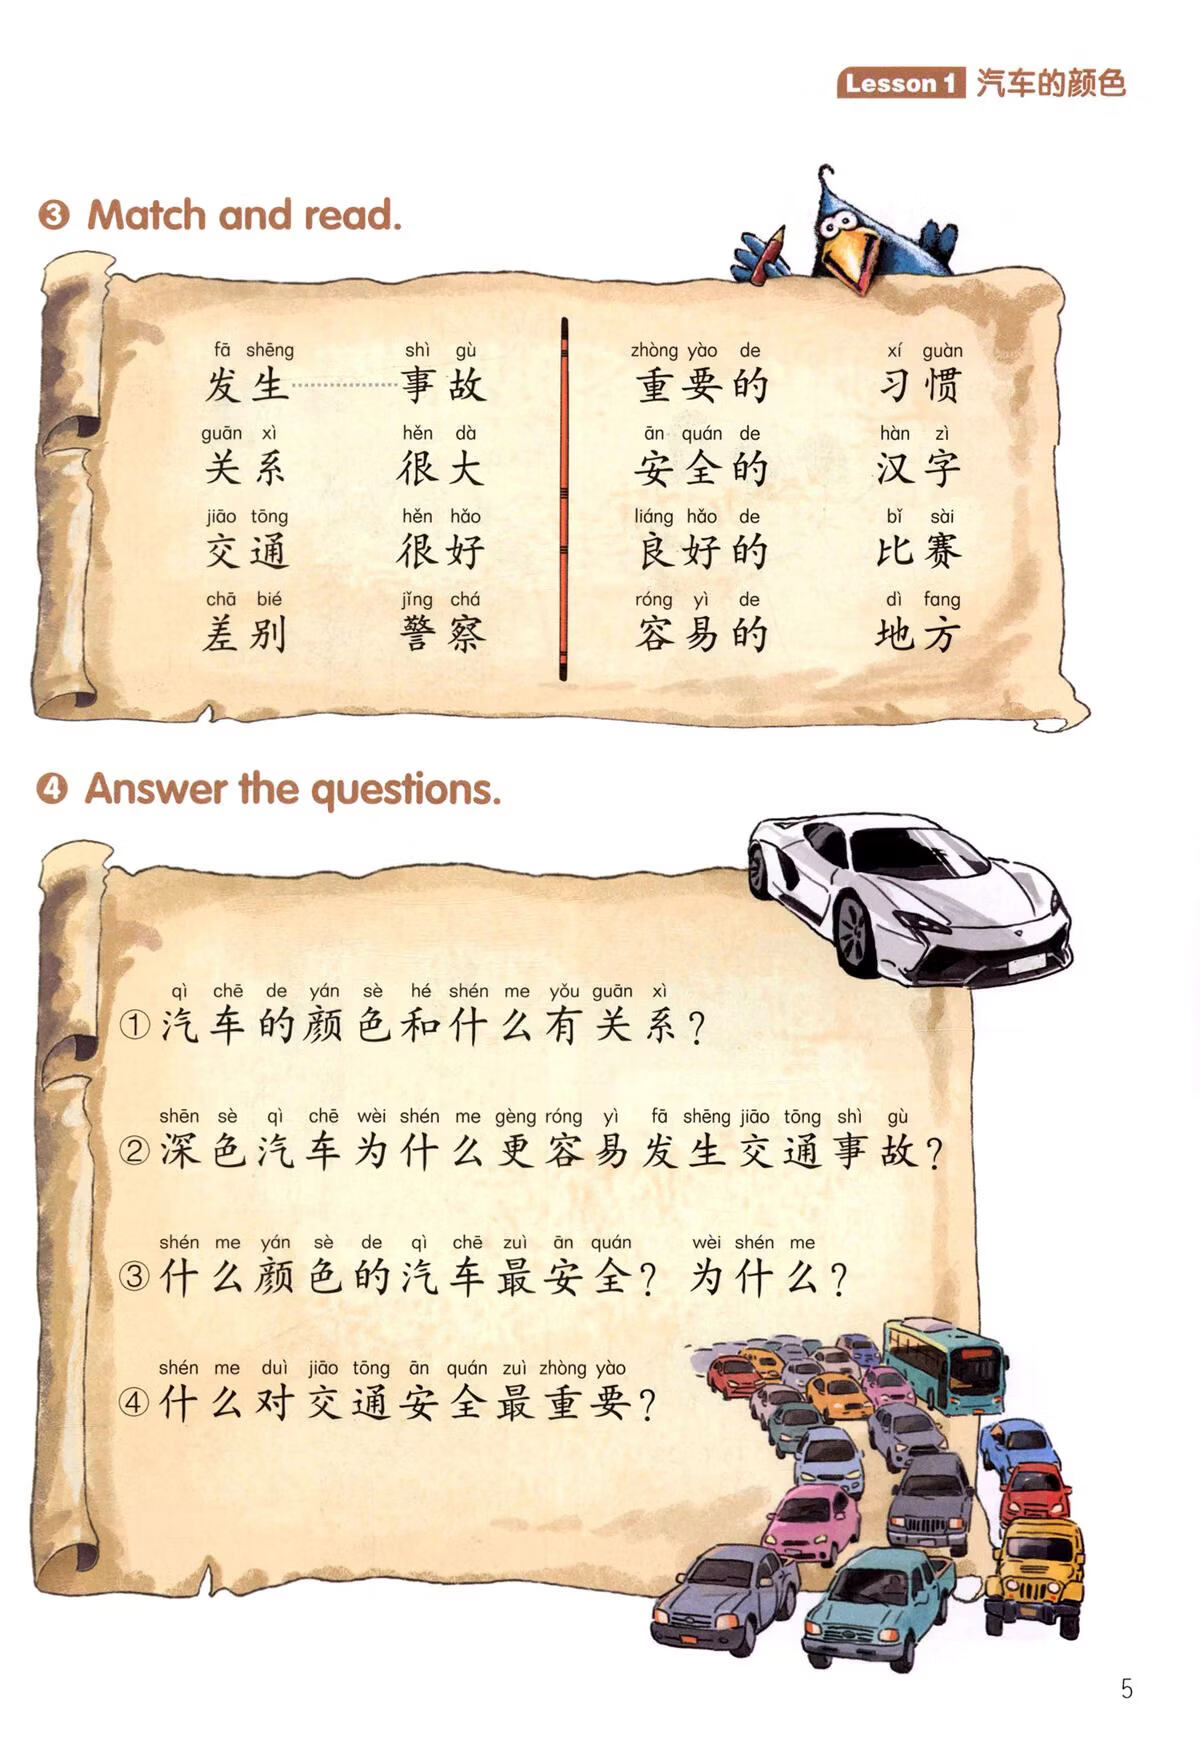 Lesson 1 汽车的颜色
3 Match and read.
fā shēng shì gù zhòng yào de xí guàn
发生 事故 重要的 习惯
guān xì hěn dà ān quán de hàn zì
关系 很大 安全的 汉字
jiāo tōng hěn hǎo liáng hǎo de bǐ sài
交通 很好 良好的 比赛
chā bié jǐng chá róng yì de dì fang
差别 警察 容易的 地方
4 Answer the questions.
qì chē de yán sè hé shén me yǒu guān xì
①汽车的颜色和什么有关系?
shēn sè qì chē wèi shén me gèng róng yì fā shēng jiāo tōng shì gù
②深色汽车为什么更容易发生交通事故?
shén me yán sè de qì chē zuì ān quán wèi shén me
③什么颜色的汽车最安全? 为什么?
shén me duì jiāo tōng ān quán zuì zhòng yào
④什么对交通安全最重要?
5